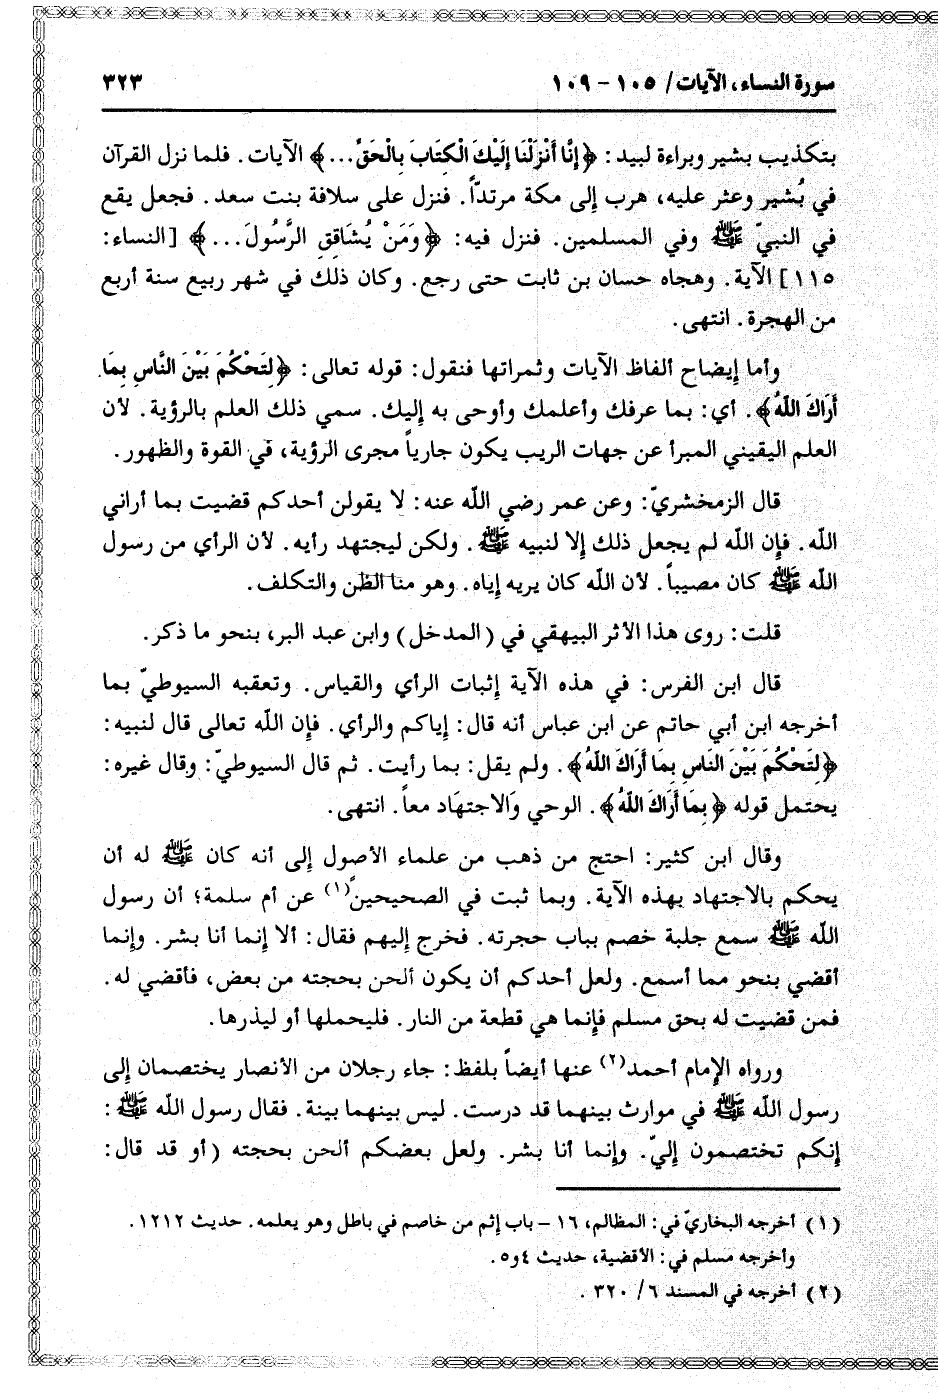 سورة النساء، الآيات/ ١٠٥ - ١٠٩ ٣٢٣
بتكذيب بشير وبراءة لبيد: ﴿إِنَّا أَنْزَلْنَا إِلَيْكَ الْكِتَابَ بِالْحَقِّ...﴾ الآيات. فلما نزل القرآن
في بُشير وعثر عليه، هرب إلى مكة مرتدّاً. فنزل على سلافة بنت سعد. فجعل يقع
في النبيّ ﷺ وفي المسلمين. فنزل فيه: ﴿وَمَنْ يُشَاقِقِ الرَّسُولَ...﴾ [النساء:
١١٥] الآية. وهجاه حسان بن ثابت حتى رجع. وكان ذلك في شهر ربيع سنة أربع
من الهجرة. انتهى.
وأما إيضاح ألفاظ الآيات وثمراتها فنقول: قوله تعالى: ﴿لِتَحْكُمَ بَيْنَ النَّاسِ بِمَا
أَرَاكَ اللَّهُ﴾. أي: بما عرفك وأعلمك وأوحى به إليك. سمي ذلك العلم بالرؤية. لأن
العلم اليقيني المبرأ عن جهات الريب يكون جارياً مجرى الرؤية، في القوة والظهور.
قال الزمخشريّ: وعن عمر رضي الله عنه: لا يقولن أحدكم قضيت بما أراني
الله. فإن الله لم يجعل ذلك إلا لنبيه ﷺ. ولكن ليجتهد رأيه. لأن الرأي من رسول
الله ﷺ كان مصيباً. لأن الله كان يريه إياه. وهو منا الظن والتكلف.
قلت: روى هذا الأثر البيهقي في (المدخل) وابن عبد البر، بنحو ما ذكر.
قال ابن الفرس: في هذه الآية إثبات الرأي والقياس. وتعقبه السيوطيّ بما
أخرجه ابن أبي حاتم عن ابن عباس أنه قال: إياكم والرأي. فإن الله تعالى قال لنبيه:
﴿لِتَحْكُمَ بَيْنَ النَّاسِ بِمَا أَرَاكَ اللَّهُ﴾. ولم يقل: بما رأيت. ثم قال السيوطيّ: وقال غيره:
يحتمل قوله ﴿بِمَا أَرَاكَ اللَّهُ﴾. الوحي والاجتهاد معاً. انتهى.
وقال ابن كثير: احتج من ذهب من علماء الأصول إلى أنه كان ﷺ له أن
يحكم بالاجتهاد بهذه الآية. وبما ثبت في الصحيحين(١) عن أم سلمة؛ أن رسول
الله ﷺ سمع جلبة خصم بباب حجرته. فخرج إليهم فقال: ألا إنما أنا بشر. وإنما
أقضي بنحو مما أسمع. ولعل أحدكم أن يكون ألحن بحجته من بعض، فأقضي له.
فمن قضيت له بحق مسلم فإنما هي قطعة من النار. فليحملها أو ليذرها.
ورواه الإمام أحمد(٢) عنها أيضاً بلفظ: جاء رجلان من الأنصار يختصمان إلى
رسول الله ﷺ في موارث بينهما قد درست. ليس بينهما بينة. فقال رسول الله ﷺ:
إنكم تختصمون إليّ. وإنما أنا بشر. ولعل بعضكم ألحن بحجته (أو قد قال:
(١) أخرجه البخاريّ في: المظالم، ١٦ - باب إثم من خاصم في باطل وهو يعلمه. حديث ١٢١٢.
وأخرجه مسلم في: الأقضية، حديث ٤و٥.
(٢) أخرجه في المسند ٦/ ٣٢٠.